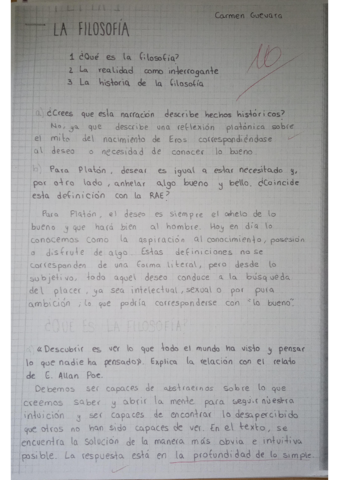 Carmen Guevara
LA FILOSOFÍA
10
1 ¿Qué es la filosofía?
2 La realidad como interrogante
3 La historia de la filosofía
a) ¿Crees que esta narración describe hechos históricos?
No, ya que describe una reflexión platónica sobre
el mito del nacimiento de Eros correspondiéndose
al deseo o necesidad de conocer lo bueno.
b) Para Platón, desear es igual a estar necesitado y,
por otro lado, anhelar algo bueno y bello. ¿Coincide
esta definición con la RAE?
Para Platón, el deseo es siempre el anhelo de lo
bueno y que hará bien al hombre. Hoy en día lo
conocemos como la aspiración al conocimiento, posesión
o disfrute de algo. Estas definiciones no se
corresponden de una forma literal, pero desde lo
subjetivo, todo aquel deseo conduce a la búsqueda
del placer, ya sea intelectual, sexual o por pura
ambición, lo que podría corresponderse con "lo bueno"
¿QUÉ ES LA FILOSOFÍA?
c) «Descubrir es ver lo que todo el mundo ha visto y pensar
lo que nadie ha pensado». Explica la relación con el relato
de E. Allan Poe.
Debemos ser capaces de abstraernos sobre lo que
creemos saber y abrir la mente para seguir nuestra
intuición y ser capaces de encontrar lo desapercibido
que otros no han sido capaces de ver. En el texto, se
encuentra la solución de la manera más obvia e intuitiva
posible. La respuesta está en la profundidad de lo simple.